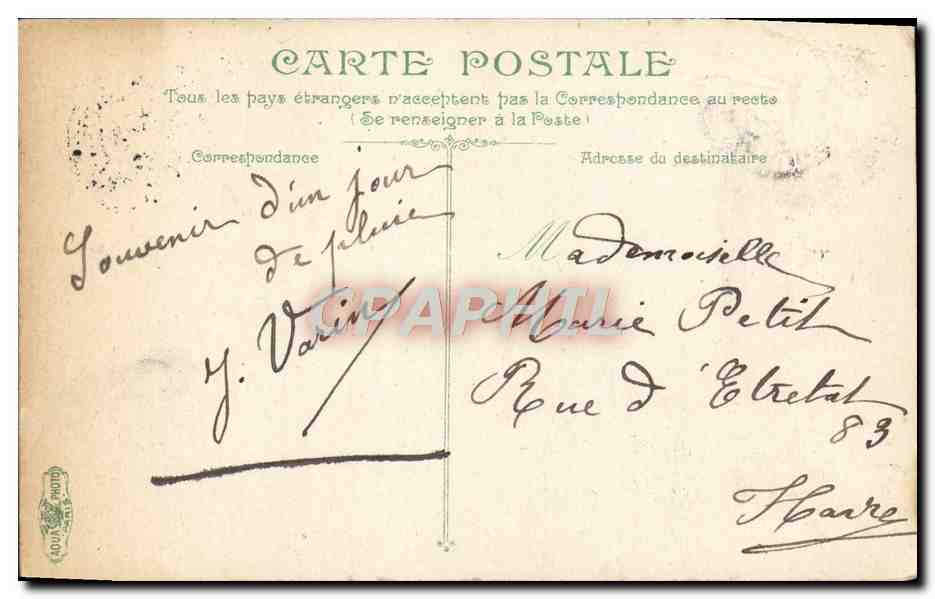 CARTE POSTALE
Tous les pays étrangers n'acceptent pas la Correspondance au recto
(Se renseigner à la Poste)
Correspondance
Adresse du destinataire
Souvenir d'un jour
de pluie
J. Varin
Mademoiselle
Marie Petit
Rue d'Etretat
83
Havre
CPAPHIL
AQUA PHOTO
PARIS